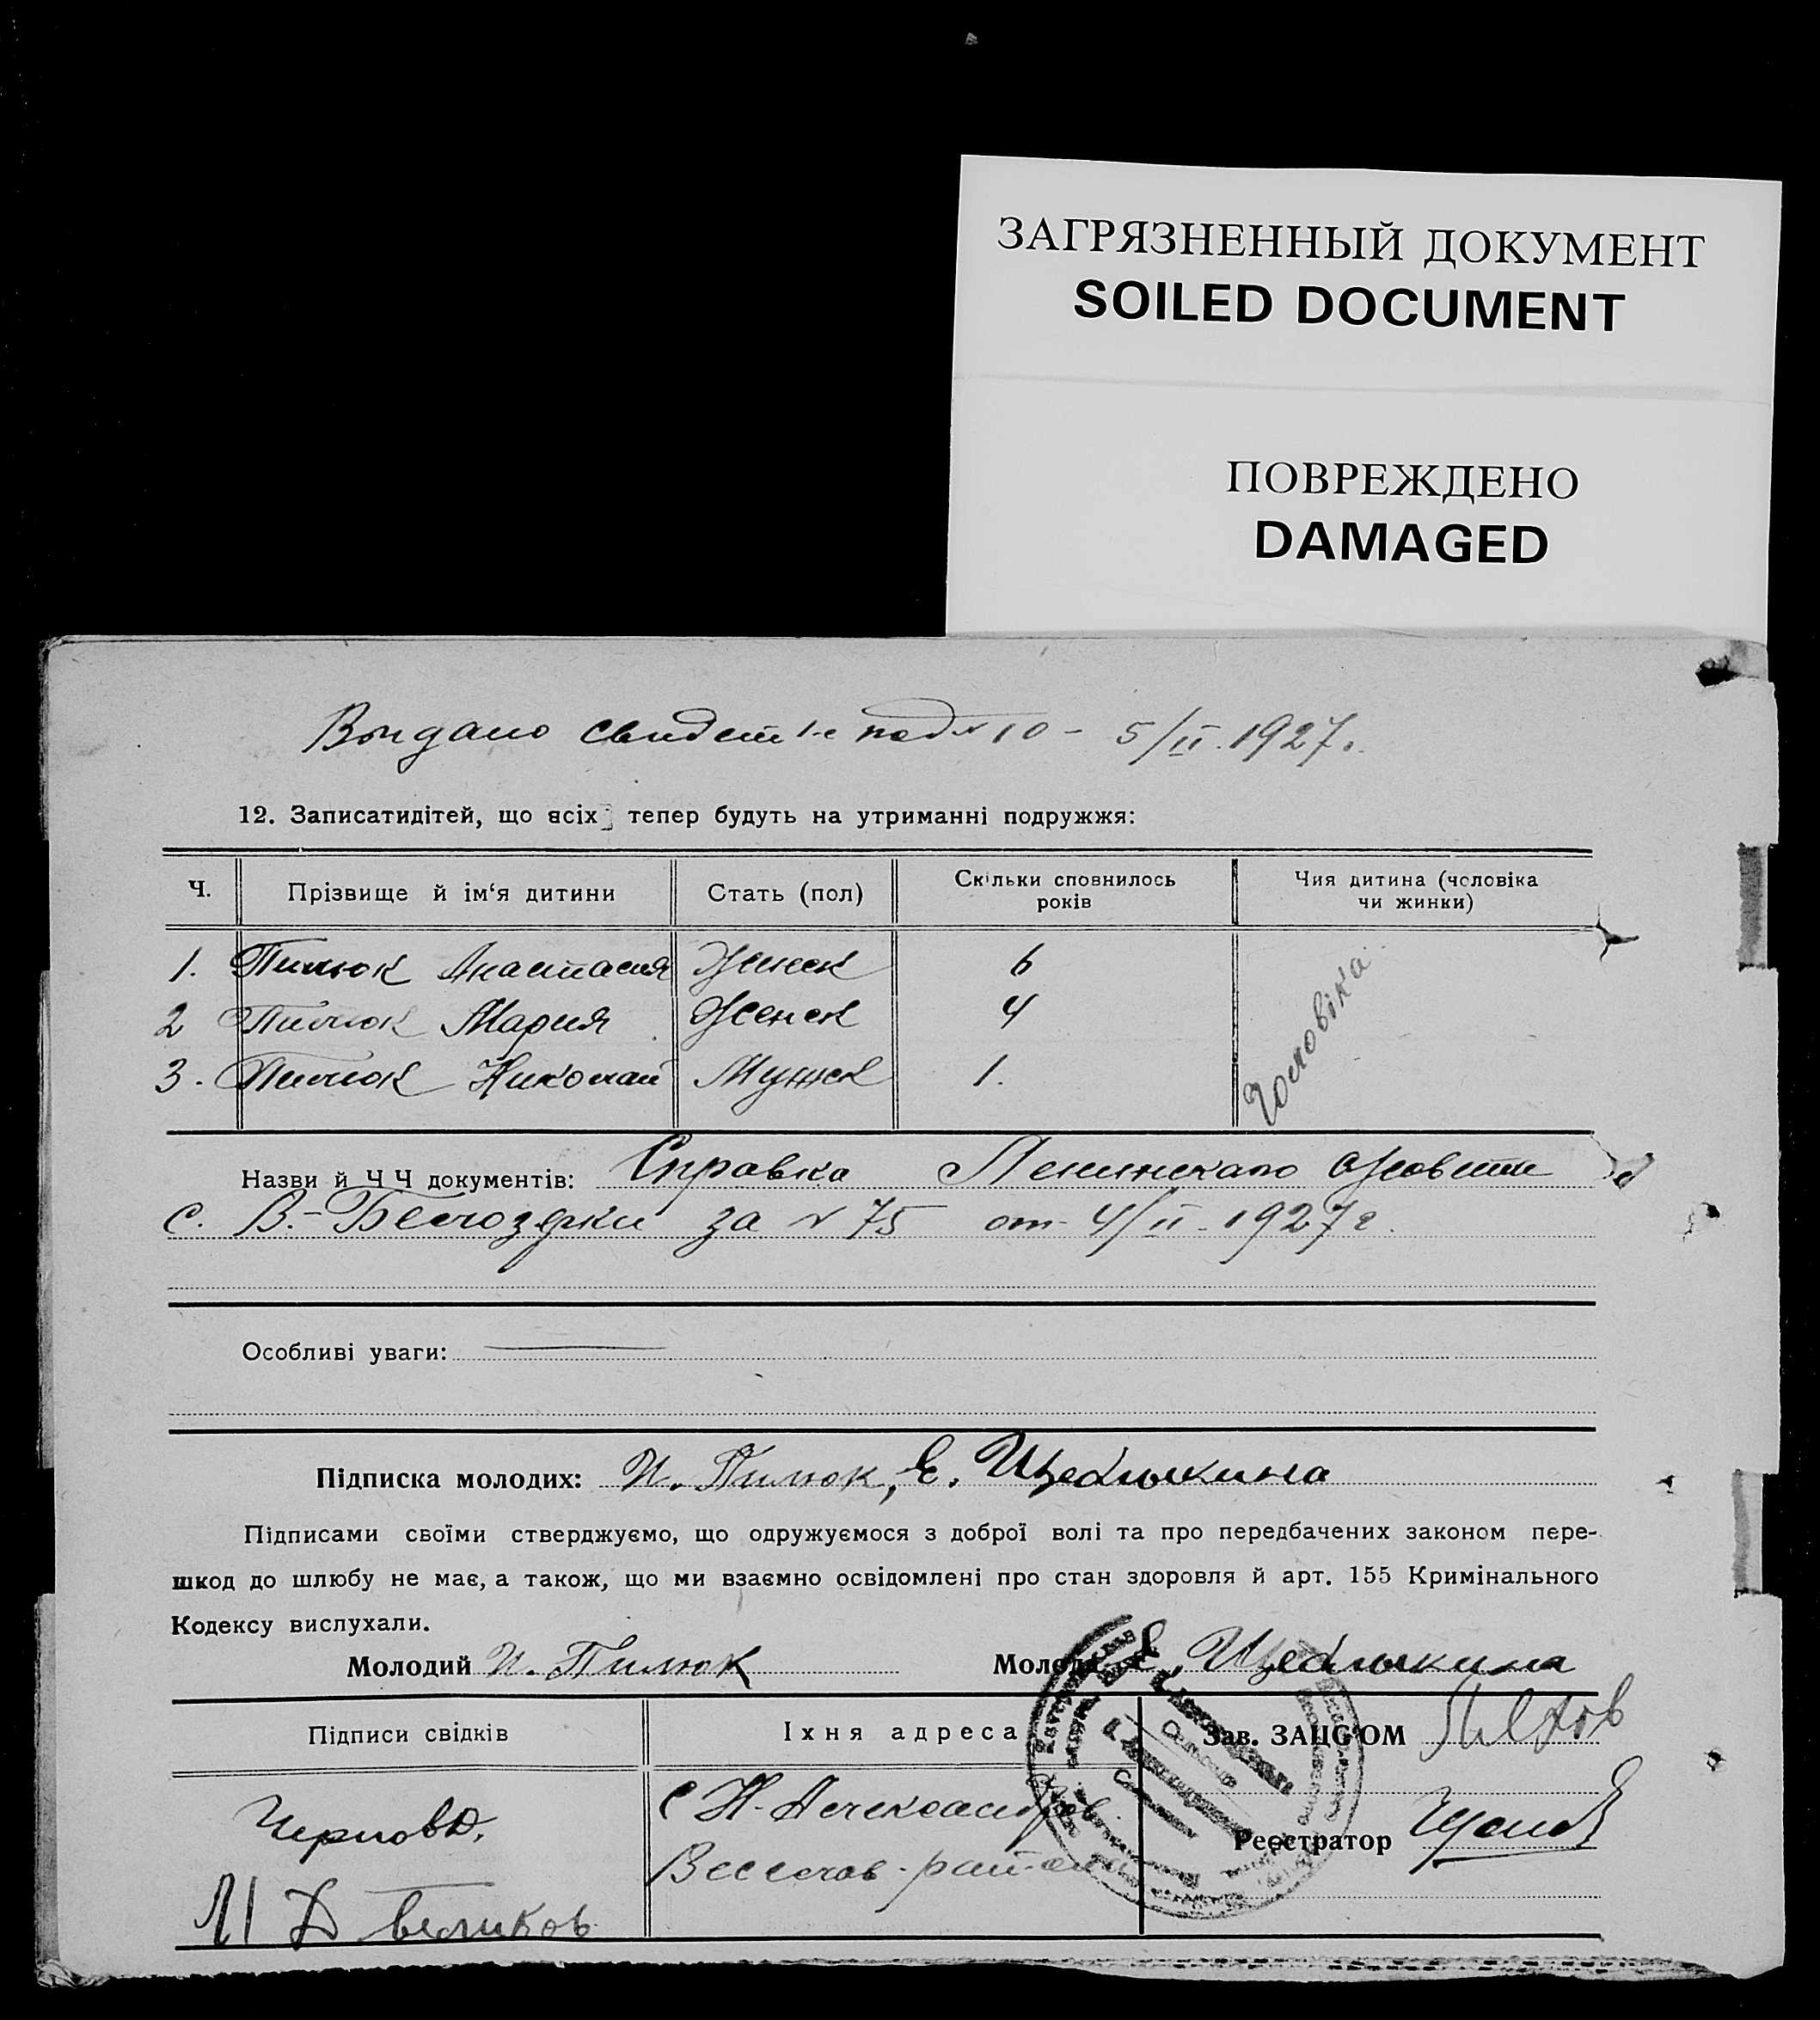 ЗАГРЯЗНЕННЫЙ ДОКУМЕНТ
SOILED DOCUMENT
ПОВРЕЖДЕНО
DAMAGED
Выдано свидет-е под № 10 - 5/II.1927.
12. Записатидітей, що всіх тепер будуть на утриманні подружжя:
Ч. Прізвище й ім‘я дитини Стать (пол) Скільки сповнилось років Чия дитина (чоловіка чи жинки)
1. Пилюк Анастасия Женск 6 Чоловіка
2 Пилюк Мария Женск 4
3. Пилюк Николай Мужск 1.
Назви й Ч Ч документів: Справка Ленинскаго
с. В.-Белозерки за № 75 от 4/II.1927 г.
Особливі уваги:
Підписка молодих: И. Пилюк, Е. Щеблыкина
Підписами своїми стверджуємо, що одружуємося з доброї волі та про передбачених законом пере-
шкод до шлюбу не має, а також, що ми взаємно освідомлені про стан здоровля й арт. 155 Кримінального
Кодексу вислухали.
Молодий И. Пилюк Молода Е. Щеблыкина
Підписи свідків Їхня адреса Зав. ЗАЦС‘ОМ
Чернов
С Н-Александров.
Реєстратор
Веселов. района
Великов